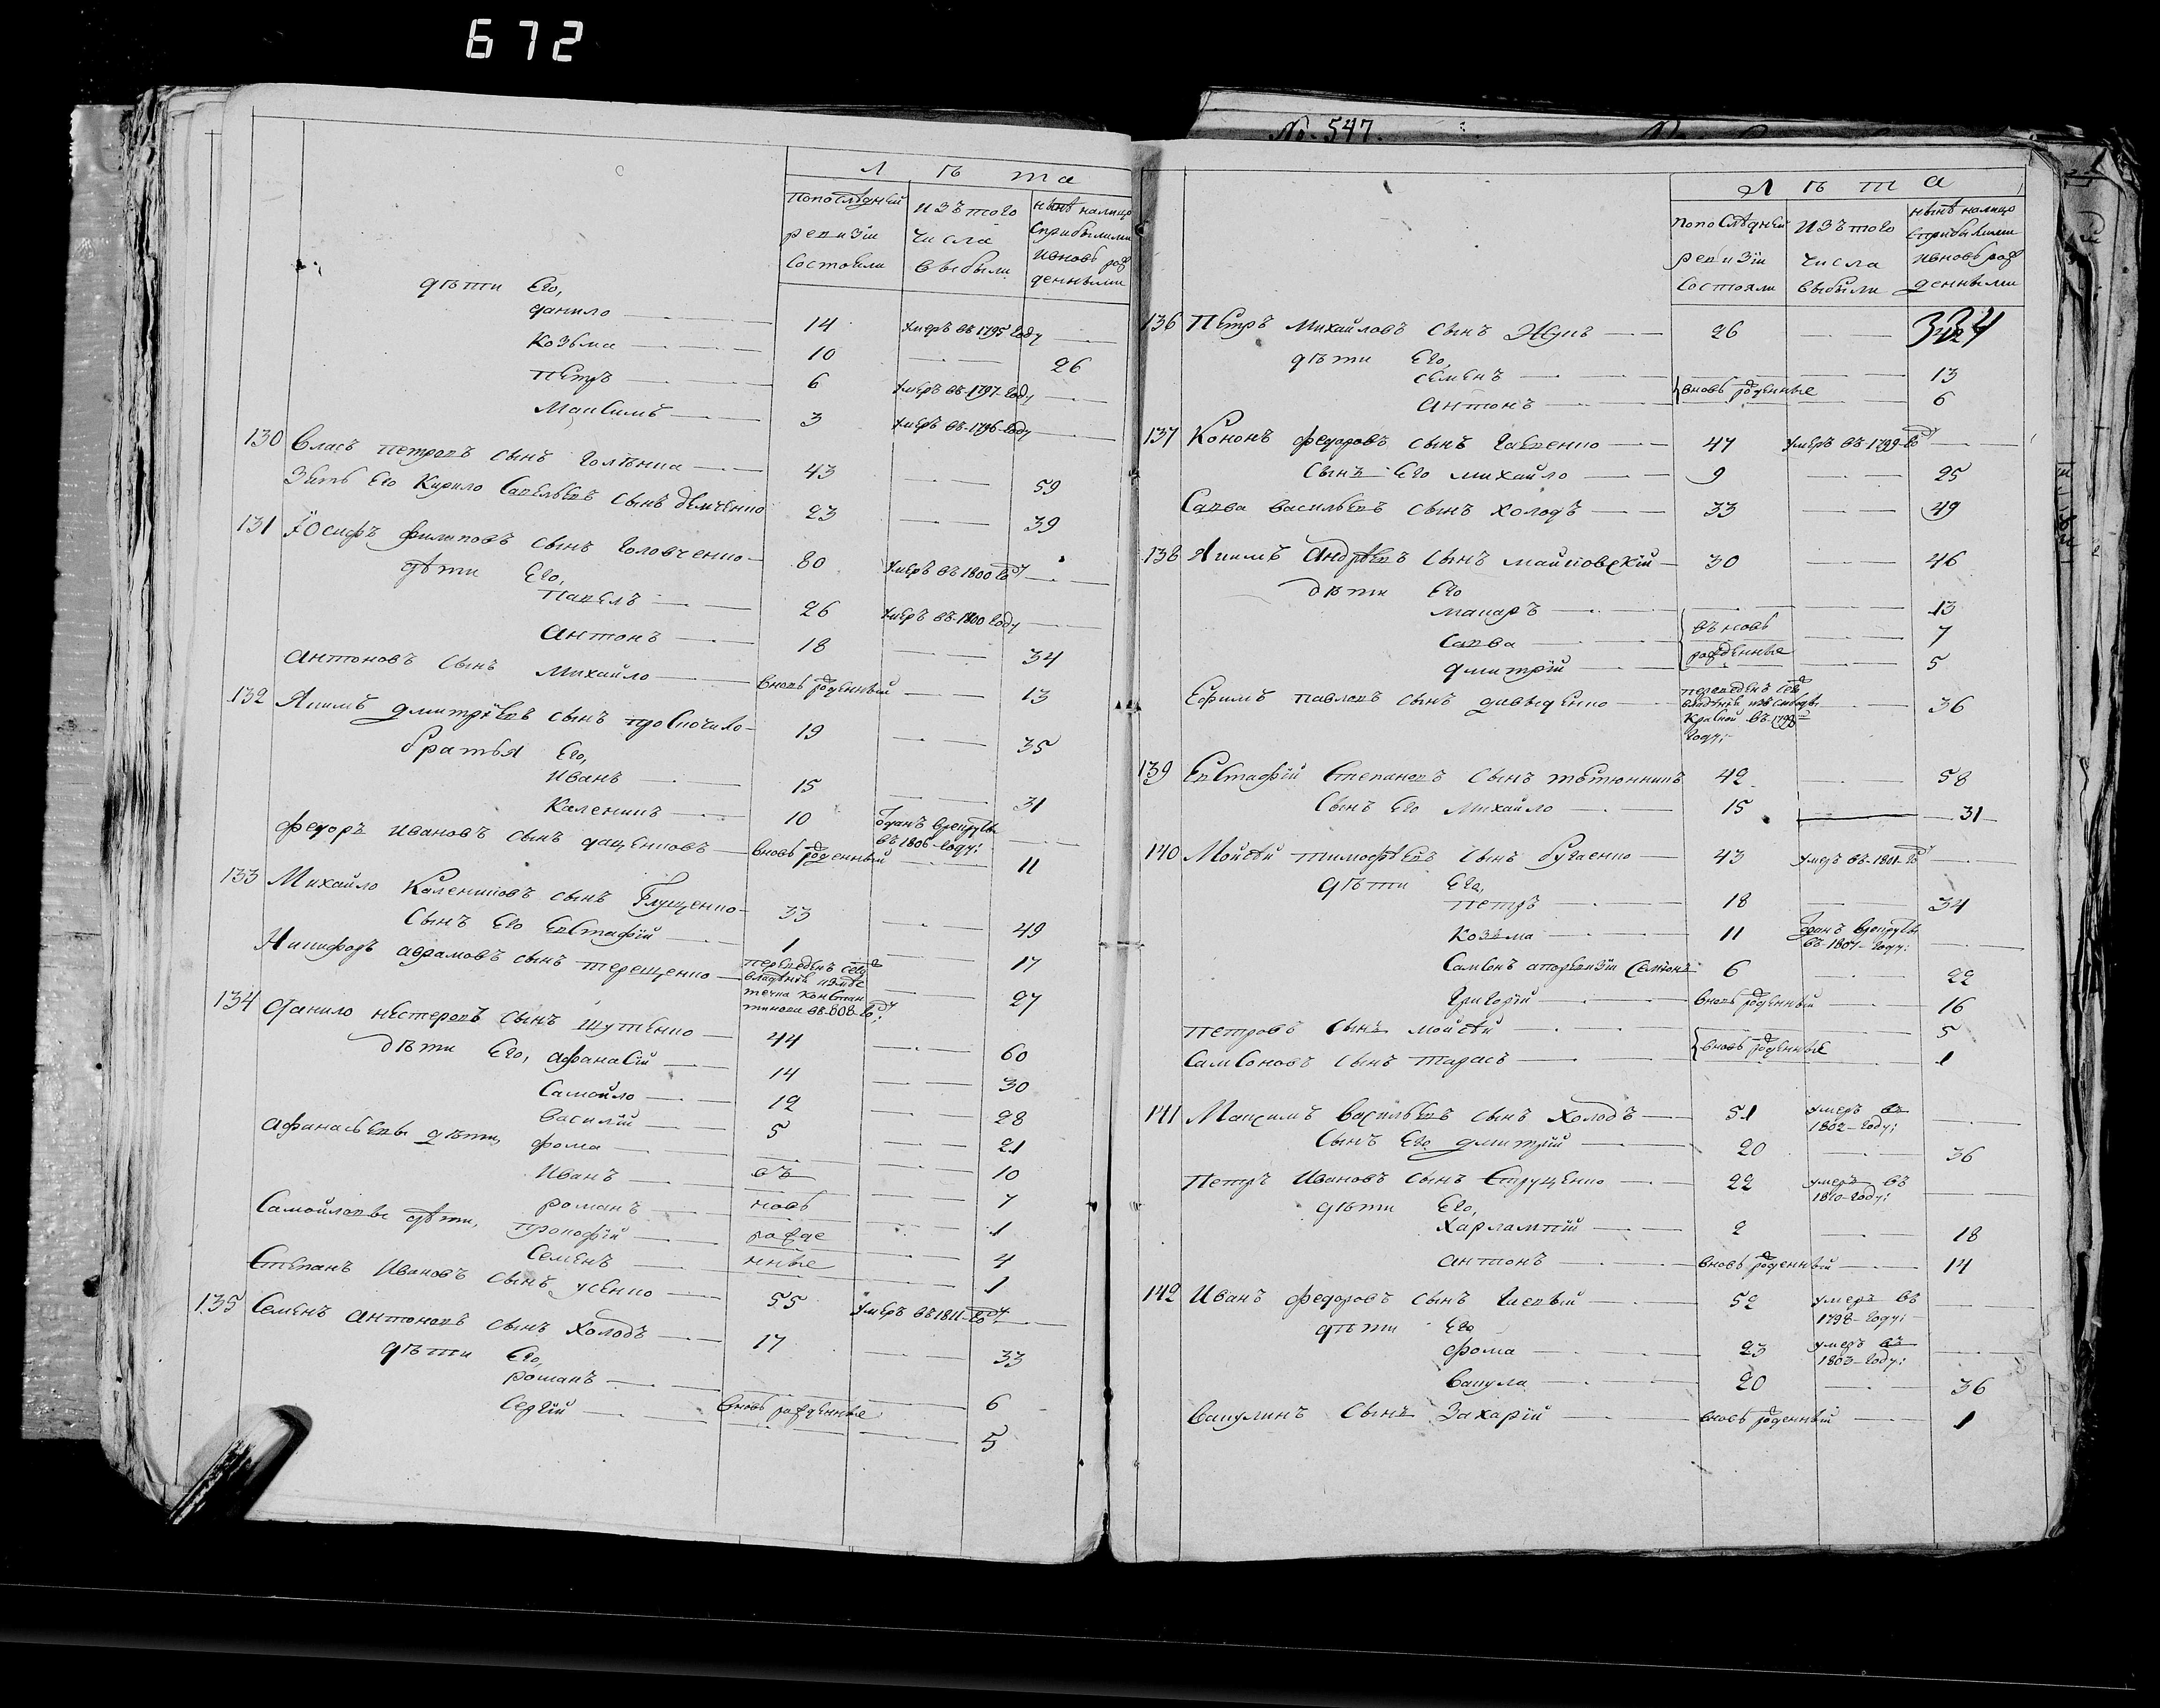 672
Лѣта
попослѣдней ревизіи состояли
изъ того числа выбыли
нынѣ налицо съприбылими ивновь рожденными
дѣти Его,
данило 14 умеръ въ 1795 году
Козьма 10 26
петръ 6 умеръ въ 1797 году
Максимъ 3 умеръ въ 1796 году
130 власъ петровъ сынъ 43 59
Зять Его Кирило Савельевъ сынъ демченко 23 39
131 Іосифъ филиповъ сынъ головченко 80 умеръ въ 1800 году
дѣти Его,
павелъ 26 умеръ въ 1800 году
антонъ 18 34
антоновъ сынъ Михайло вновь рожденный 13
132 Якимъ дмитріевъ сынъ 19 35
братья Его,
Иванъ 15 31
Каленикъ 10 отданъ врекруты въ 1806 году;
федоръ ивановъ сынъ даценковъ вновь рожденный 11
133 Михайло Калениковъ сынъ Глущенко 33 49
сынъ Его Евстафій 1 17
Никифоръ аврамовъ сынъ терещенко 27
134 данило нестеровъ сынъ шутенко 44 60
дѣти Его, афанасій 14 30
Самойло 12 28
василій 5 21
афанасьевы дѣти, фома 10
Иванъ въ 7
романъ новь 1
Самойловы дѣти, прокофій рожде 4
Семенъ нные 1
Степанъ Ивановъ сынъ усенко 55 умеръ въ 1811 году
135 Семенъ антоновъ сынъ холодъ 17 33
дѣти Его,
романъ вновь рожденные 6
Сергій 5
No. 547.
Лѣта
попослѣдней ревизіи состояли
изъ того числа выбыли
нынѣ налицо съприбылими ивновь рожденными
136 Петръ Михайловъ сынъ Жукъ 26
дѣти Его
семенъ вновь рожденные 13
антонъ 6
137 Кононъ федоровъ сынъ гавренко 47 умеръ въ 1799 году
сынъ Его михайло 9 25
Савва васильевъ сынъ холодъ 33 49
138 Якимъ андрѣевъ сынъ 30 46
дѣти Его
макаръ 13
савва въновь 7
дмитрій рожденные 5
Ефимъ павловъ сынъ давыденко 36
139 Евстафій Степановъ сынъ 42 58
сынъ Его Михайло 15 31
140 Мойсѣй тимофѣевъ сынъ бугаенко 43 умеръ въ 1811 году
дѣти Его,
петръ 18 34
козьма 11 отданъ врекруты въ 1807 году;
Самсонъ аповревизіи Семіонъ 6 22
григорій вновь рожденный 16
петровъ сынъ мойсѣй вновь рожденные 5
Самсоновъ сынъ тарасъ 1
141 Максимъ васильевъ сынъ холодъ 51 умеръ въ 1802 году;
сынъ Его дмитрій 20 36
петръ Ивановъ сынъ Струценко 22 умеръ въ 1810 году;
дѣти Его,
харлампій 2 18
антонъ вновь рожденный 14
142 Иванъ федоровъ сынъ 52 умеръ въ 1798 году;
дѣти Его
фома 23 умеръ въ 1803 году;
вакула 20 36
вакулинъ сынъ Захарій вновь рожденный 1